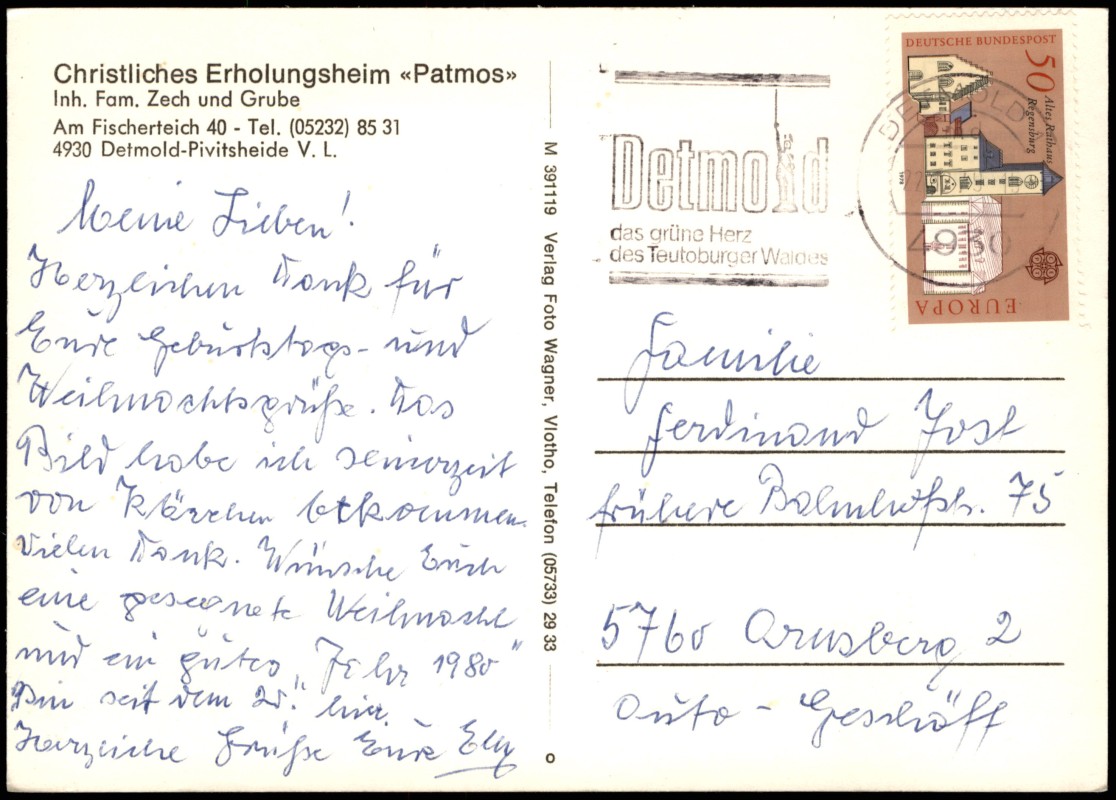 Christliches Erholungsheim «Patmos»
Inh. Fam. Zech und Grube
Am Fischerteich 40 - Tel. (05232) 85 31
4930 Detmold-Pivitsheide V. L.
Meine Lieben!
Herzlichen Dank für
Eure Geburtstags- und
Weihnachtsgrüße. Das
Bild habe ich seinerzeit
von Kärchen bekommen.
Vielen Dank. Wünsche Euch
eine gesegnete Weihnacht
und ein gutes „Jahr 1980"
Bin seit dem 20. hier.
Herzliche Grüße Eure Elly
M 391119 Verlag Foto Wagner, Vlotho, Telefon (05733) 29 33
Detmold
das grüne Herz
des Teutoburger Waldes
DEUTSCHE BUNDESPOST
50
Altes Rathaus
Regensburg
EUROPA
DETMOLD
4930
Familie
Ferdinand Jost
frühere Bahnhofstr. 75
5760 Arnsberg 2
Auto - Geschäft